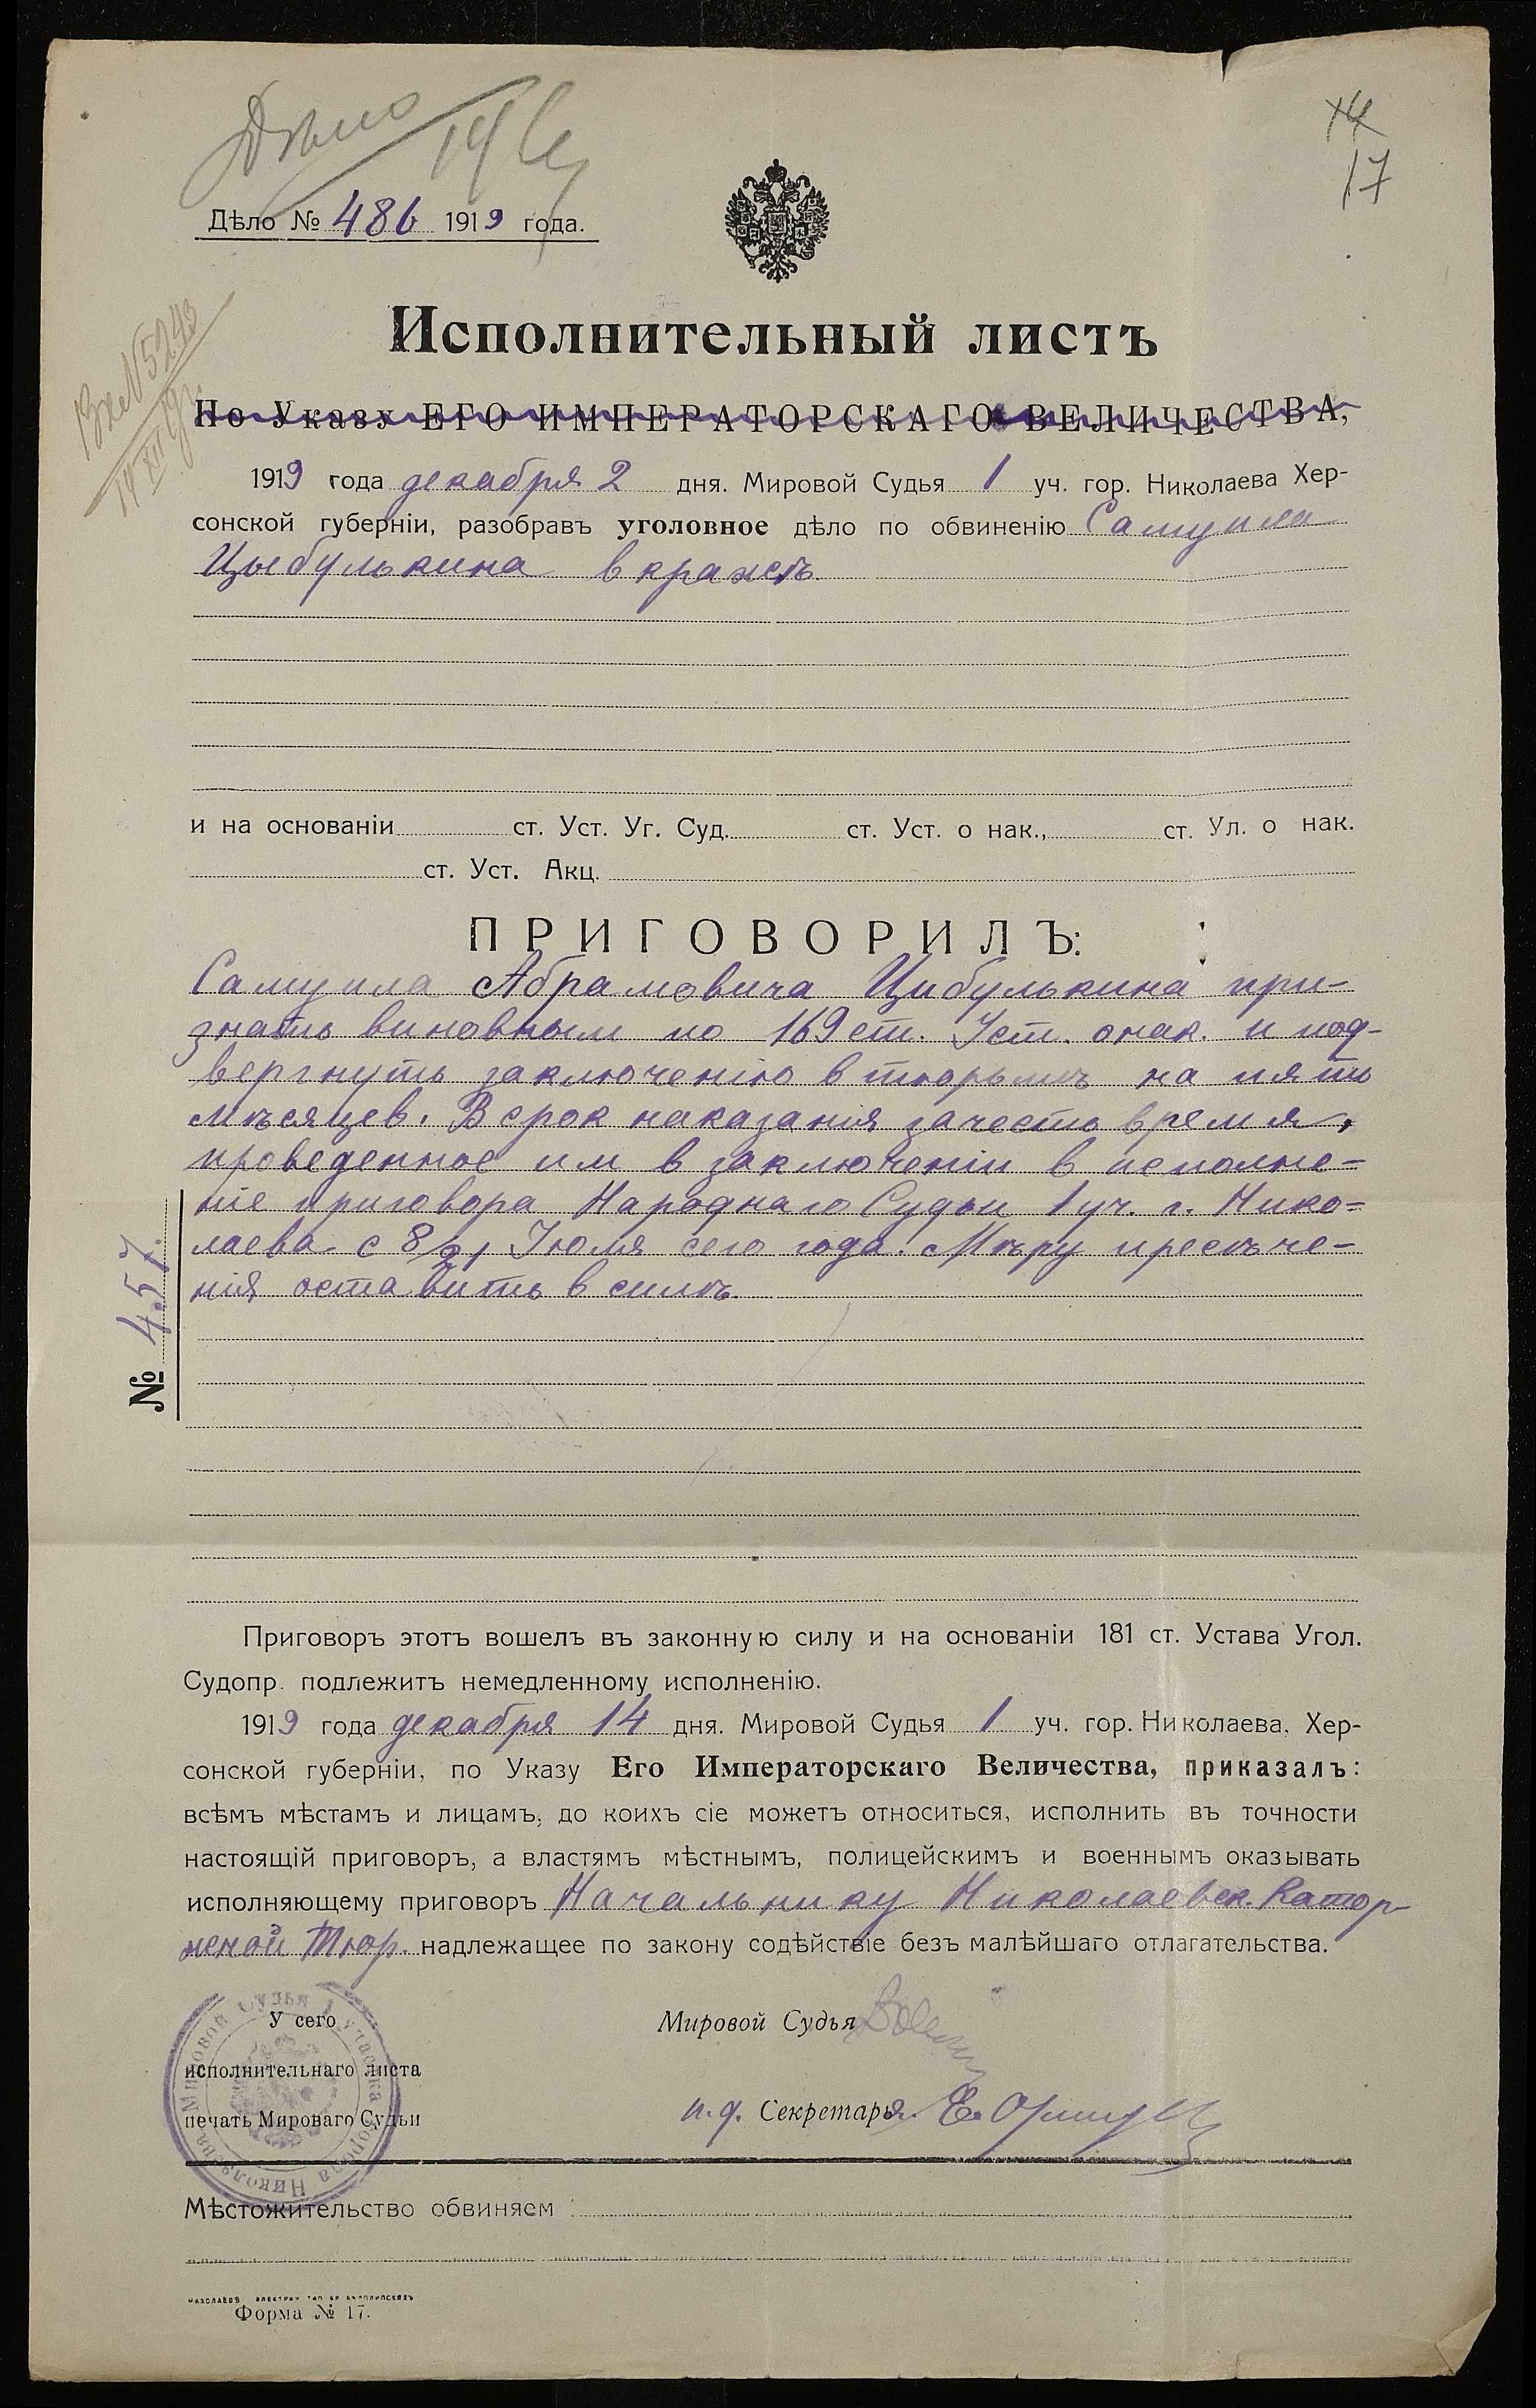 Дѣло
17
Дѣло № 486 1919 года.
Исполнительный листъ
Вх № 5243
14 XII 19 г.
По Указу ЕГО ИМПЕРАТОРСКАГО ВЕЛИЧЕСТВА,
1919 года декабря 2 дня. Мировой Судья 1 уч. гор. Николаева Хер-
сонской губерніи, разобравъ уголовное дѣло по обвиненію Самуила
Цыбулькина в кражѣ
и на основаніи ст. Уст. Уг. Суд. ст. Уст. о нак., ст. Ул. о нак.
ст. Уст. Акц.
ПРИГОВОРИЛЪ:
Самуила Абрамовича Цибулькина при-
знать виновным по 169 ст. Уст. о нак. и под-
вергнуть заключенію в тюрьмѣ на пять
мѣсяцев. В срок наказанія зачесть время,
проведенное им в заключеніи в исполне-
ніе приговора Народнаго Судьи 1 уч. г. Нико-
лаева с 8/21 Іюля сего года. Мѣру пресѣче-
нія оставить в силѣ.
№ 457.
Приговоръ этотъ вошелъ въ законную силу и на основаніи 181 ст. Устава Угол.
Судопр. подлежитъ немедленному исполненію.
1919 года декабря 14 дня. Мировой Судья 1 уч. гор. Николаева, Хер-
сонской губерніи, по Указу Его Императорскаго Величества, приказалъ:
всѣмъ мѣстамъ и лицамъ, до коихъ сіе можетъ относиться, исполнить въ точности
настоящій приговоръ, а властямъ мѣстнымъ, полицейскимъ и военнымъ оказывать
исполняющему приговоръ Начальнику Николаевск. Катор-
жной Тюр. надлежащее по закону содѣйствіе безъ малѣйшаго отлагательства.
У сего
исполнительнаго листа
печать Мирового Судьи
Мировой Судья 1 участка города Николаева
Мировой Судья
и. д. Секретаря Е.
Мѣстожительство обвиняем
Форма № 17.